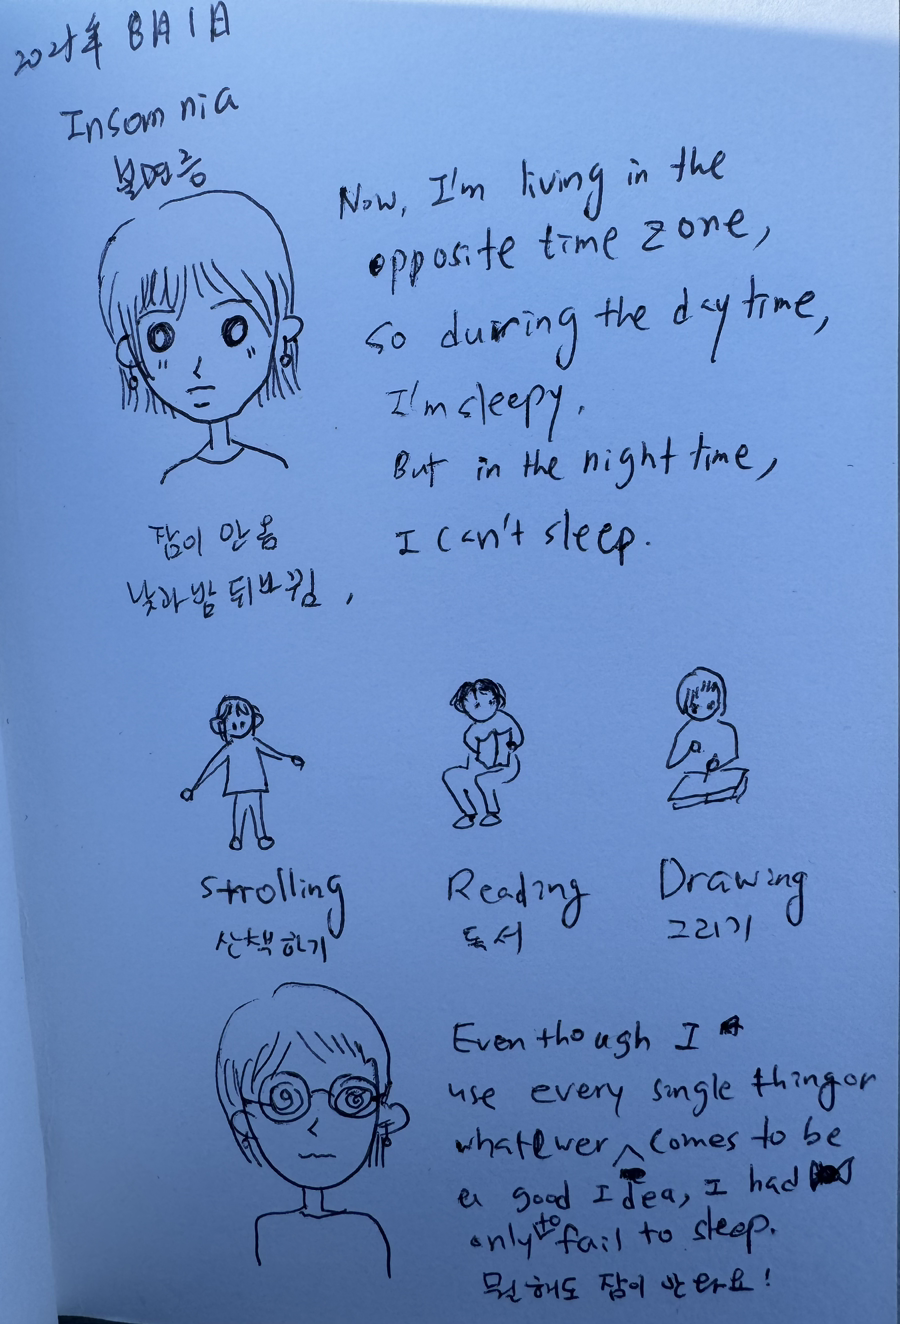 2024年 8月 1日
Insomnia
불면증
Now, I'm living in the
opposite time zone,
so during the day time,
I'm sleepy.
But in the night time,
I can't sleep.
잠이 안 옴
낮과 밤 뒤바뀜,
Strolling
산책하기
Reading
독서
Drawing
그리기
Even though I
use every single thing or
whatever comes to be
a good Idea, I had
only to fail to sleep.
뭘 해도 잠이 안 와요!